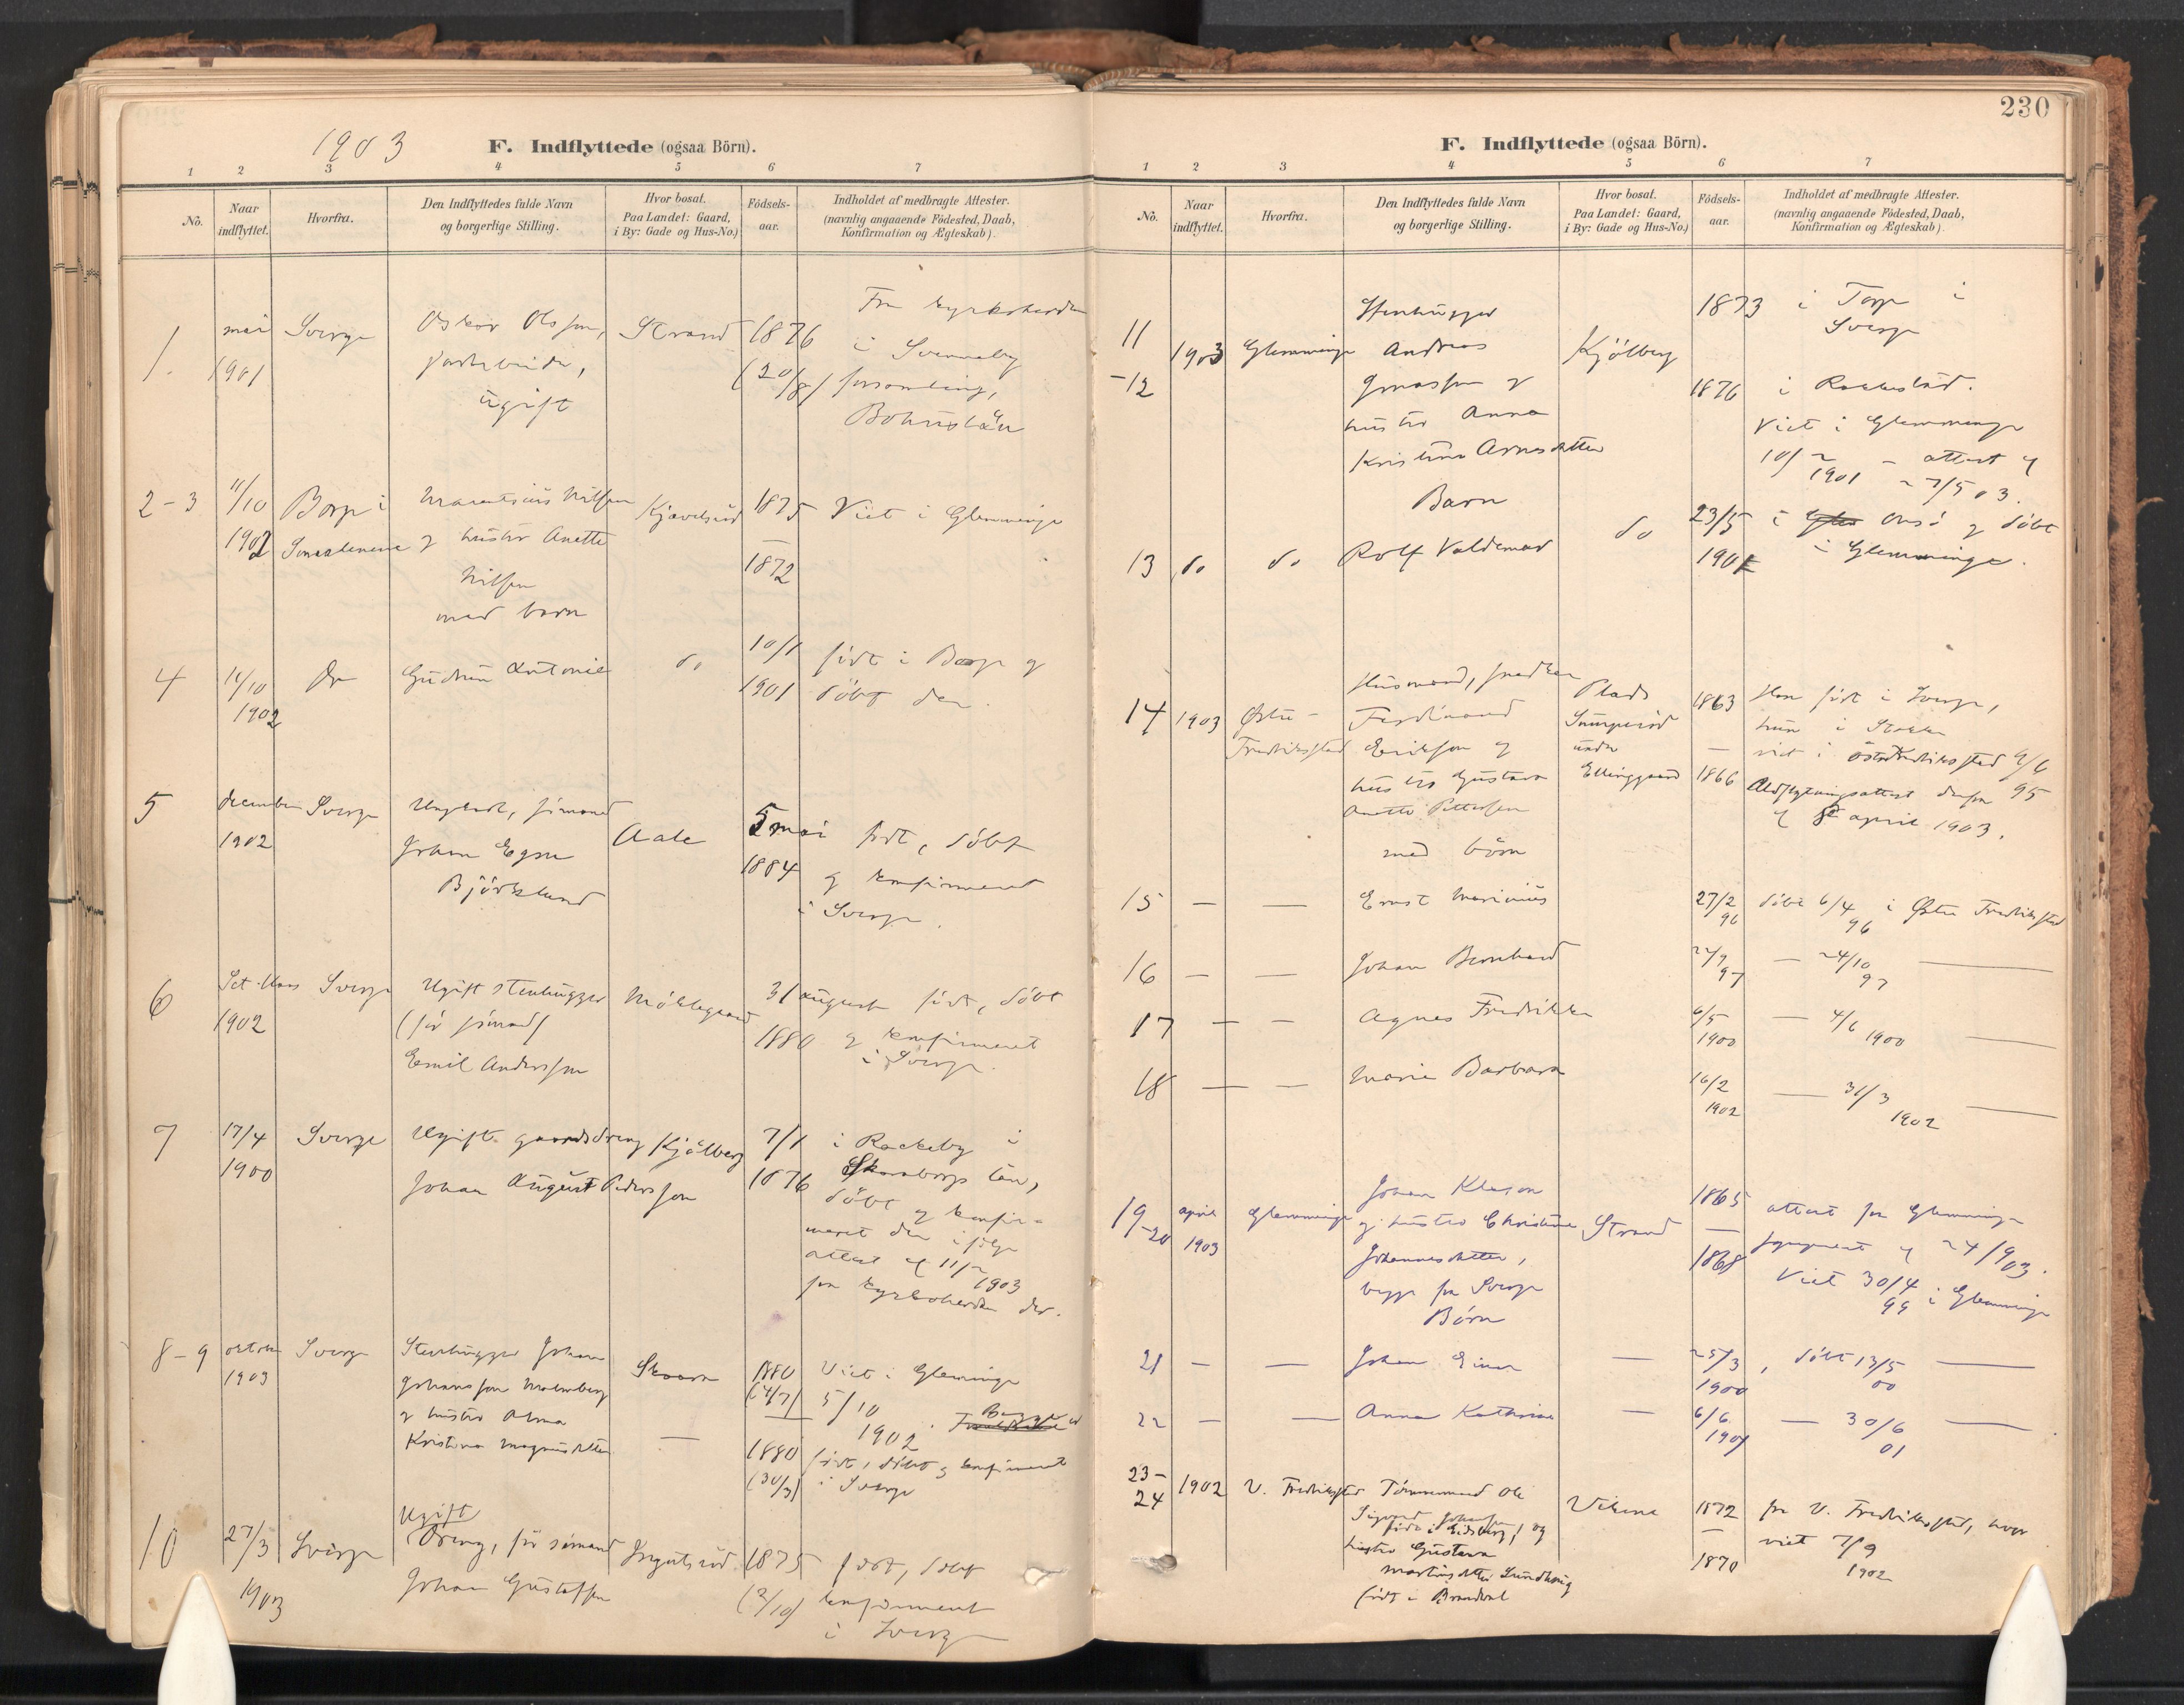 1903
F. Indflyttede (ogsaa Börn).
1 2 3 4 5 6 7
No.
Naar indflyttet.
Hvorfra.
Den Indflyttedes fulde Navn
og borgerlige Stilling.
Hvor bosat.
Paa Landet: Gaard,
i By: Gade og Hus-No.)
Födsels-
aar.
Indholdet af medbragte Attester.
(navnlig angaaende Födested, Daab,
Konfirmation og Ægteskab).
1. mai Sverge Oskar Olsson, Strand 1876 Fra kyrkoherden
1901 ugift (20/8) i Svenneby
forsamling,
Bohuslän
2-3 11/10 Borge i Nilsen 1875 Viet i Glemminge
1902 Smaalenene og hustru Anette —
Nilsen 1872
med barn
4 11/10 Do Gudrun Antonie do 10/1 födt i Borge og
1902 1901 döbt der.
5 december Sverge Ungkarl, sömand Aale 5 mai födt, döbt
1902 Johan 1884 og konfirmeret
Björklund i Sverge.
6 Sct. Hans Sverge Ugift stenhugger 31 august födt, döbt
1902 (för sömand) 1880 og konfirmeret
Emil Andersson i Sverge.
7 17/4 Sverge Ugift gaardsdreng Kjölberg 7/1 i Rackeby i
1900 Johan August Pedersson 1876 Skaraborgs län,
döbt og konfir-
meret der ifölge
attest af 11/2 1903
fra kyrkoherden der.
8-9 oktober Sverge Stenhugger Johan Skaara 1880 Viet i Glemminge
1903 Johansson Malmberg (14/7) 5/10
og hustru Alma — 1902. Begge
Kristina Magnusdatter — 1880 födt, döbt og konfirmeret
(30/3) i Sverge
10 27/3 Sverge Ugift
1903 Dreng, för sömand 1875 födt, döbt
Johan Gustafsson (2/10) konfirmeret
i Sverge
230
F. Indflyttede (ogsaa Börn).
1 2 3 4 5 6 7
No.
Naar
indflyttet.
Hvorfra.
Den Indflyttedes fulde Navn
og borgerlige Stilling.
Hvor bosat.
Paa Landet: Gaard,
i By: Gade og Hus-No.)
Födsels-
aar.
Indholdet af medbragte Attester.
(navnlig angaaende Födested, Daab,
Konfirmation og Ægteskab).
11 Stenhugger 1873 i Torp i
Sverge
1903 Glemminge Andreas Kjölberg
-12 Jonasson og 1876 i Rakkestad.
hustru Anna Viet i Glemminge
Kristine Arnesdatter 10/2 1901 – attest af
Barn 27/5 03.
13 do do Rolf Valdemar do 23/5 i Onsö og döbt
1901 i Glemminge.
14 1903 Østre- Husmand, snedker Plads 1863 Han födt i Sverge,
Fredriksstad Ferdinand hun i
Erikson og under — viet i Östre Fredriksstad
hustru Gustava Elinggaard 1866
Anette Pettersen april 1903.
med börn
15 — — Ernst Marinius 27/2 96 döbt 6/4 96 i Østre Fredriksstad
16 — — Johan Bernhard 97 — 24/10 97 —
17 — — Agnes Fredrikke 6/5 1900 — 4/6 1900 —
18 — — Marie Barbara 16/2 1902 — 31/3 1902 —
19 april Glemminge Johan Klason 1865 attest fra Glemminge
-20 1903 og hustru Christine Strand — 24/9 03.
Johannesdatter, 1868 Viet 30/4 99 i Glemminge
begge fra Sverge
Börn
21 — — Johan Einar — 25/3 1900, döbt 13/5 00 —
22 — — Anna Kathrine — 6/6 1901 — 30/6 01 —
23- 1902 V. Fredriksstad Tömmermand Ole Vikene 1872 fra V. Fredriksstad, hvor
24 Sigvard Johansen — viet 7/9
födt i Eidsberg, og 1870 1902
hustru Gustava
födt i Brandval